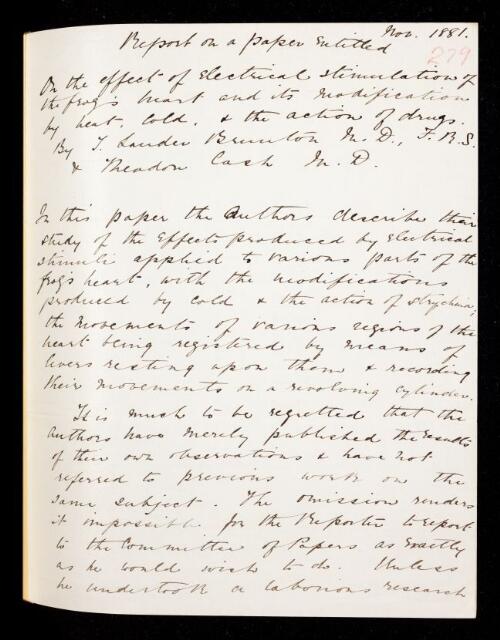 Nov. 1881.
279
Report on a paper entitled
On the effect of electrical stimulation of
the frog's heart and its modification
by heat, cold, & the action of drugs.
By T. Lauder Brunton M.D., F.R.S.
& Theodore Cash M.D.
In this paper the authors describe their
study of the effects produced by electrical
stimuli applied to various parts of the
frog's heart, with the modifications
produced by cold & the action of strychnia,
the movements of various regions of the
heart being registered by means of
levers resting upon them & recording
their movements on a revolving cylinder.
It is much to be regretted that the
authors have merely published the results
of their own observations & have not
referred to previous work on the
same subject. The omission renders
it impossible for the Reporter to report
to the Committee of Papers as exactly
as he would wish to do. Unless
he undertook a laborious research